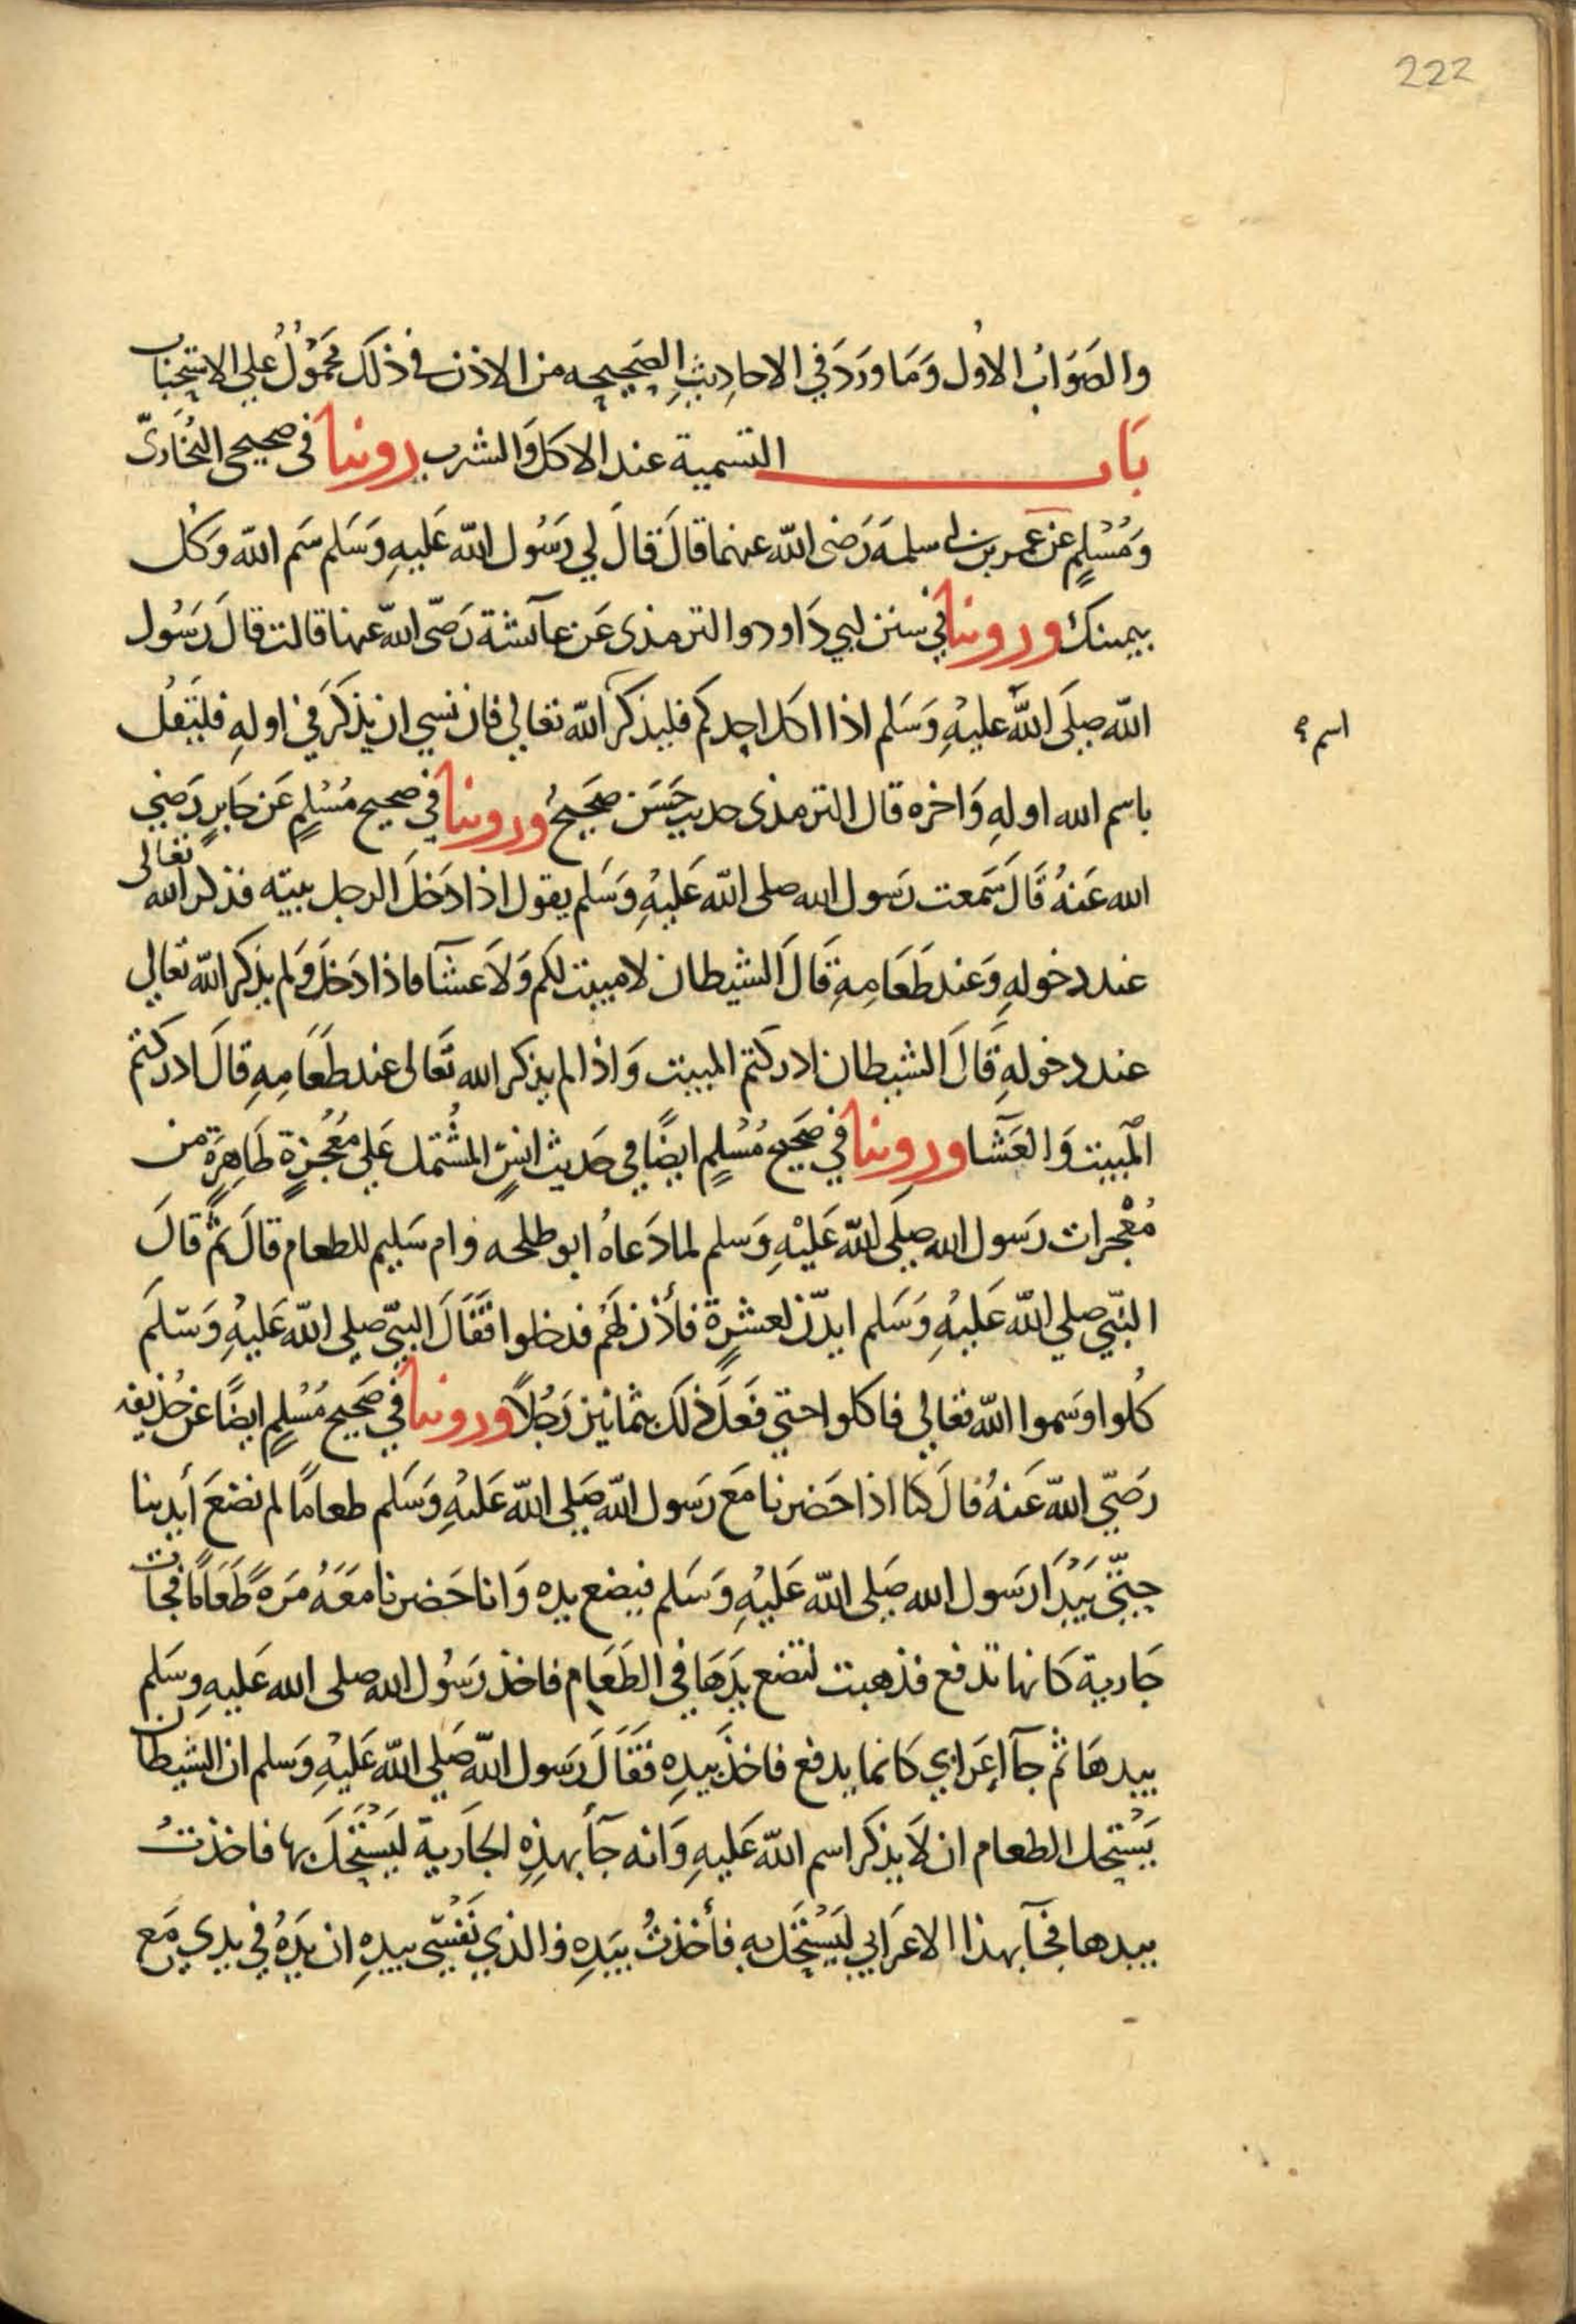 222
والصَوَابُ الاوُل وَمَا وَرَدَ في الاحادِيثِ الصَحِيحِه من الاذن في ذلَكَ مَحمُوْلُ علي الاستحِبَاب
بَاب التسمية عند الاكل وَالشرب روينا في صحيحي البُخَاريّ
وَمُسْلِمٍ عَن عمر بن ابي سلمَه رَضي الله عنهما قالَ قالَ لي رَسُول الله عَليهِ وَسَلم سَم الله وَكل
بيمينك وروينا في سنن ابي دَاود والترمذي عَن عآئشة رَضيّ الله عنها قالت قالَ رَسُول
الله صلَى الله عَليهِ وَسَلم اذا اكل احدكم فليذكر الله تعَالي فان نسي ان يذكرَ في اولهِ فليَقُل
اسم
باسم الله اولهِ وَاخره قال الترمذي حديث حَسَن صَحَيحٌ وروينا في صحيح مُسْلمٍ عَن جَابرٍ رَضي
الله عَنهُ قَالَ سَمعت رَسول الله صلى الله عَليهِ وَسَلم يقول اذا دَخَلَ الرجل بيته فذكر الله تعَالى
عند دخولهِ وَعند طَعَامِهِ قَالَ الشيطان لا مبيت لكم وَلاَ عشآ فاذا دَخَلَ وَلم يذكر الله تعَالي
عند دخولهِ قَالَ الشيطان ادركتم المبيت وَاذا لم يذكر الله تعَالى عند طَعَامِهِ قالَ ادركتم
المَبيت وَالعَشَآ وروينا في صَحيح مُسْلمٍ ايضًا في حَديث انسٍ المشُتمل عَلي مُعْجزةٍ ظَاهِرَة من
مُعْجزات رَسول الله صلَى الله عَليْهِ وَسلم لما دَعاهُ ابو طلحه وام سَليم للطعام قالَ ثم قالَ
النبّي صلي الله عَليهِ وَسَلم ايذن لعشرةٍ فأذن لهَمُ فدخلوا فقَالَ النبيّ صلي الله عَليهِ وَسَلمَ
كُلوا وَسموا الله تعَالي فاكلوا حتي فَعلَ ذلَكَ بثمانين رَجُلاً وروينا في صَحيح مُسْلمٍ ايضًا عن حُذيفه
رَضيّ الله عَنهُ قالَ كنا اذا حَضرنا مَع رَسول الله صَلى الله عَليْهِ وَسَلم طعامًا لم نضعَ أيدينا
حتّي يَبْدَأ رَسول الله صَلى الله عَليْهِ وَسَلم فيضع يده وَانا حَضرنا مَعَهُ مَرةً طَعَامًا فجات
جَارية كَانها تدفع فذهبت لتضع يدَهَا في الطَعَام فاخذ رَسُول الله صلى الله عَليهِ وسَلم
بيدهَا ثم جآ اعرَابي كَانما يدفع فاخذَ بيدِهِ فقَالَ رَسول الله صَلي الله عَليْهِ وَسلم ان الشيطان
يَسْتحل الطعام ان لاَ يذكر اسم الله عَليهِ وَانه جآ بهذِهِ الجَارية ليَسْتَحلَ بها فاخذتُ
بيدها فجآ بهذا الاعرَابي ليَسْتَحلَ بهِ فأخذتُ بيَدِهِ والذي نَفْسيّ بيدِهِ ان يَدَهُ في يدي مَع